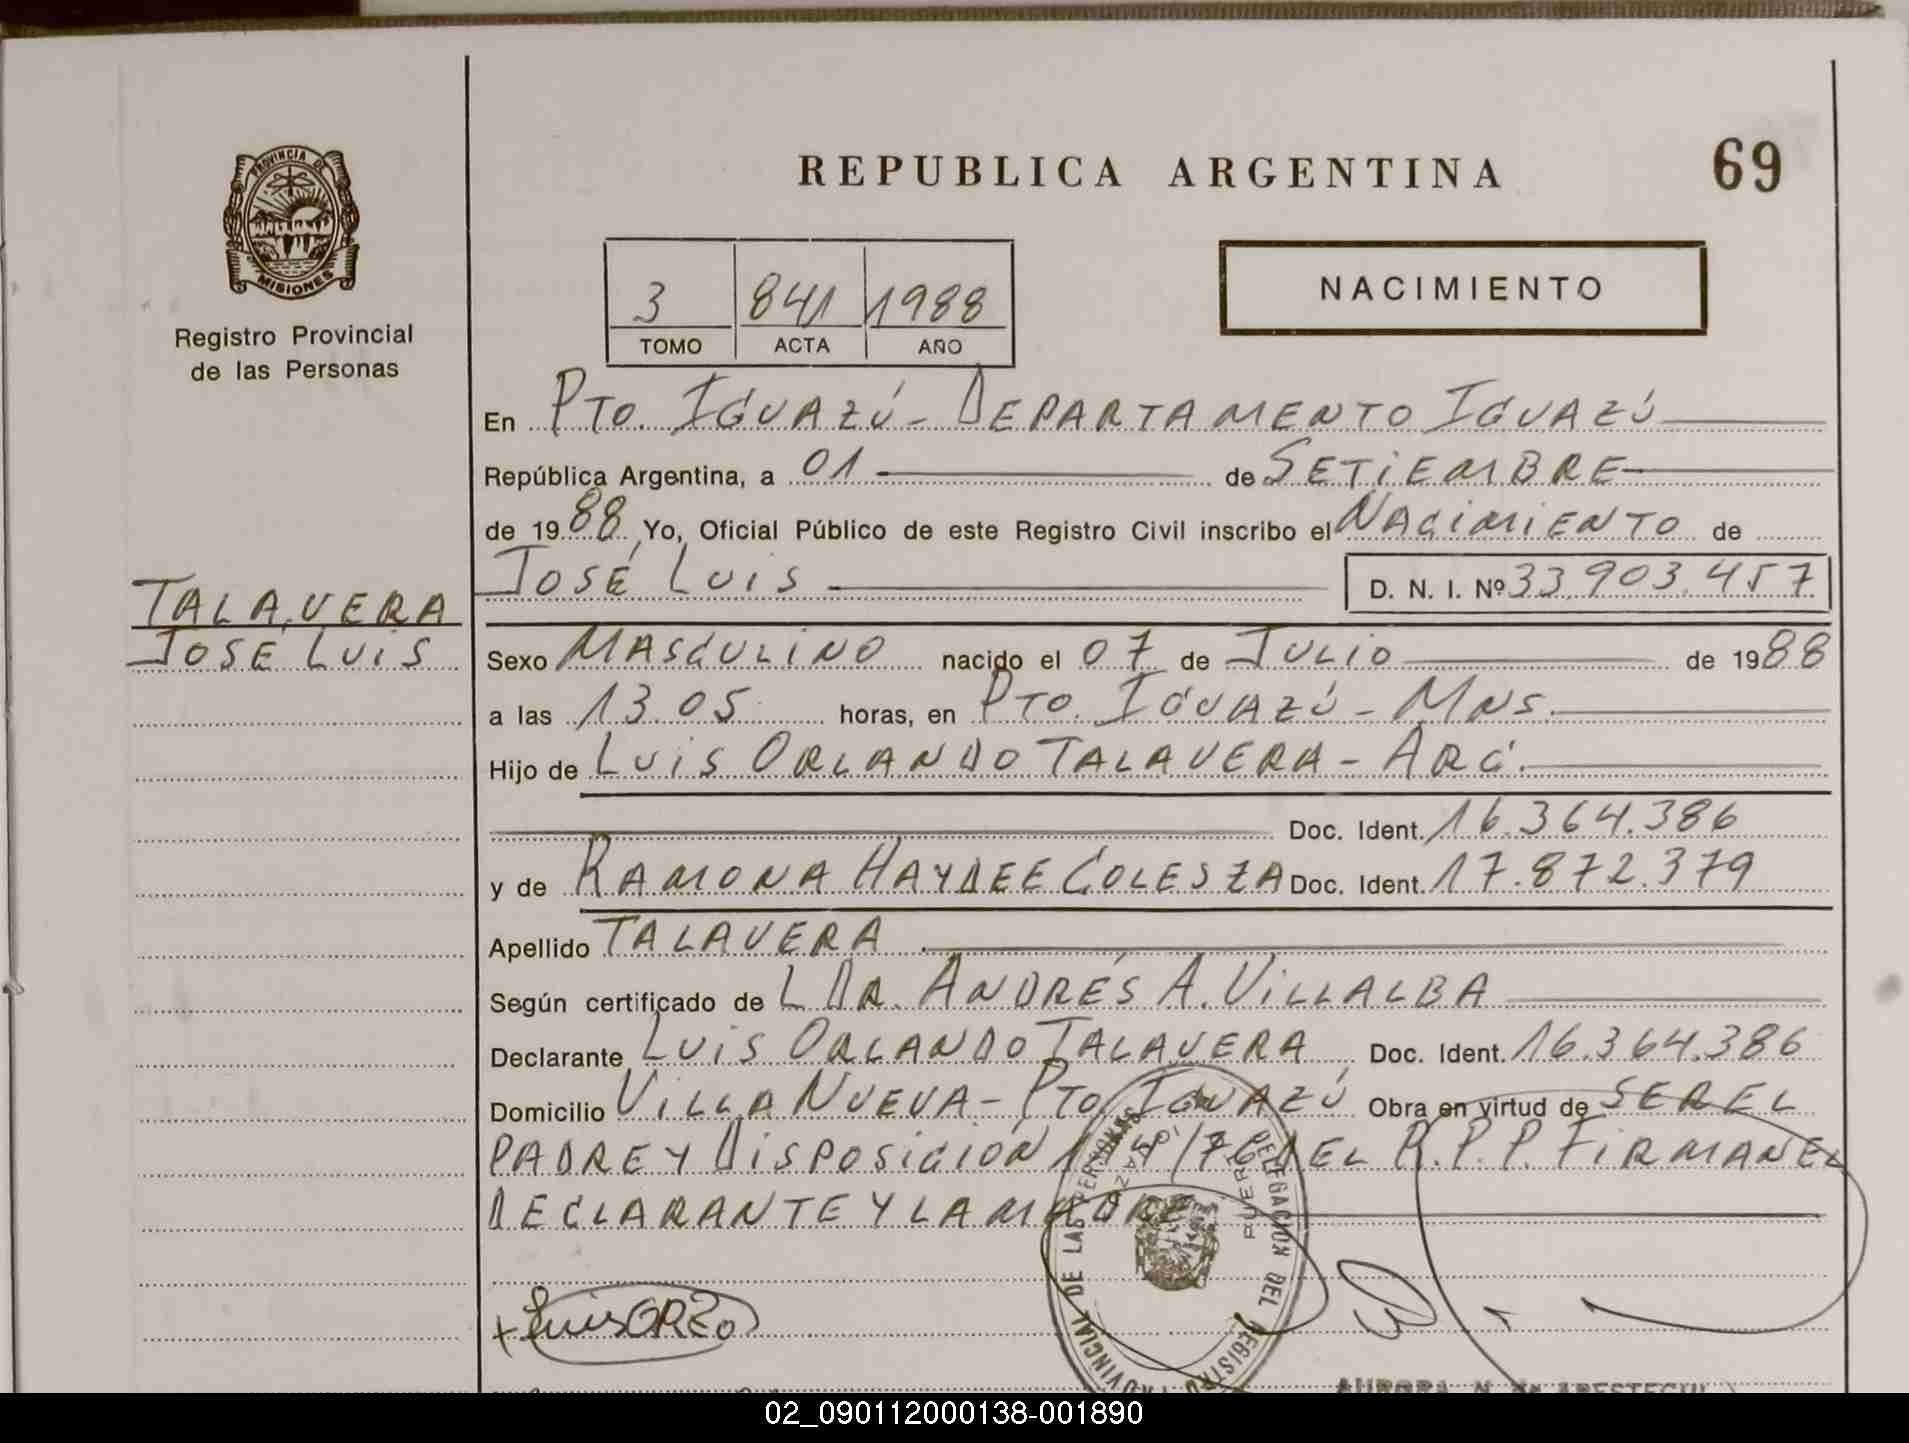 REPUBLICA ARGENTINA
69
PROVINCIA DE
MISIONES
Registro Provincial
de las Personas
3 841 1988
TOMO ACTA AÑO
NACIMIENTO
En PTO. IGUAZÚ - DEPARTAMENTO IGUAZÚ
República Argentina, a 01 de SETIEMBRE
de 1988 Yo, Oficial Público de este Registro Civil inscribo el NACIMIENTO de
JOSÉ LUIS D. N. I. Nº 33.903.457
TALAVERA
JOSÉ LUIS
Sexo MASCULINO nacido el 07 de JULIO de 1988
a las 13.05 horas, en PTO. IGUAZÚ - MNS.
Hijo de LUIS ORLANDO TALAVERA - ARG.
Doc. Ident. 16.364.386
y de RAMONA HAYDEE COLESZA Doc. Ident. 17.872.379
Apellido TALAVERA
Según certificado de L DR. ANDRÉS A. VILLALBA
Declarante LUIS ORLANDO TALAVERA Doc. Ident. 16.364.386
Domicilio VILLA NUEVA - PTO IGUAZÚ Obra en virtud de SER EL
PADRE Y DISPOSICIÓN /76 DEL R.P.P. FIRMAN EL
DECLARANTE Y LA MADRE
DELEGACION DEL REGISTRO PROVINCIAL DE LAS PERSONAS
02_090112000138-001890